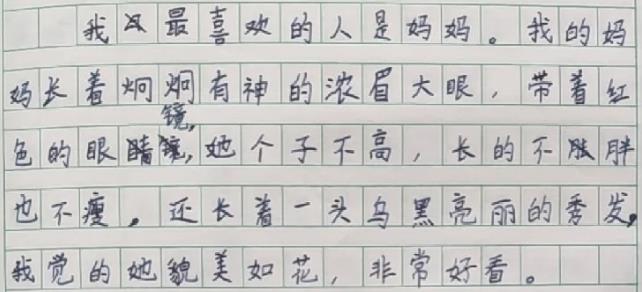 我最喜欢的人是妈妈。我的妈
妈长着炯炯有神的浓眉大眼，带着红
色的眼镜，她个子不高，长的不胖
也不瘦。还长着一头乌黑亮丽的秀发，
我觉的她貌美如花，非常好看。